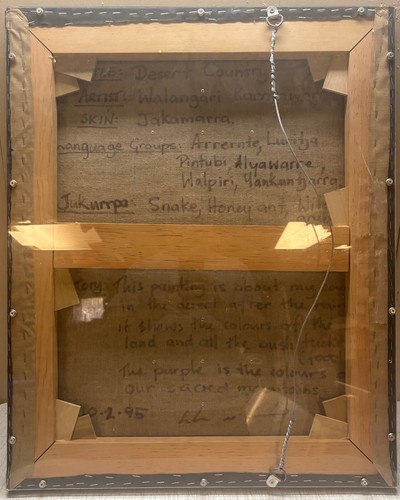 Desert Country
ARTIST: Walangari
SKIN: Jakamarra.
Language Groups: Arrernte, Luritja
Pintubi, Alyawarre,
Walpiri, Yankantjarra
Jukurrpa: Snake, Honey ant,
This painting is about my
in the desert after the rain
it shows the colours of the
land and all the bush tucker
The purple is the colours
our sacred mountains
0.2.95